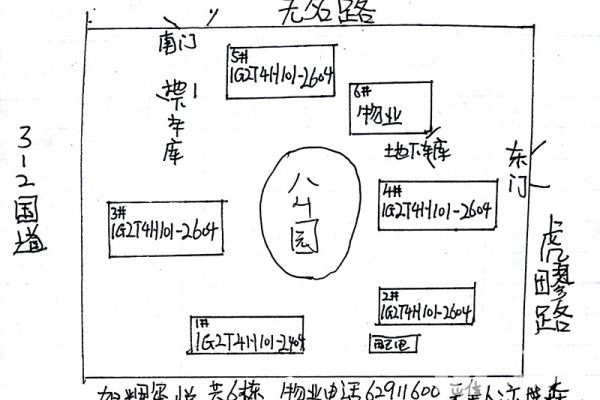 无名路
南门
5#
1G2T4H101-2604
6#
物业
地下车库
地下车库
东门
312国道
3#
1G2T4H101-2604
八斗园
4#
1G2T4H101-2604
2#
1G2T4H101-2604
1#
1G2T4H101-2404
路
共6栋 物业电话62911600